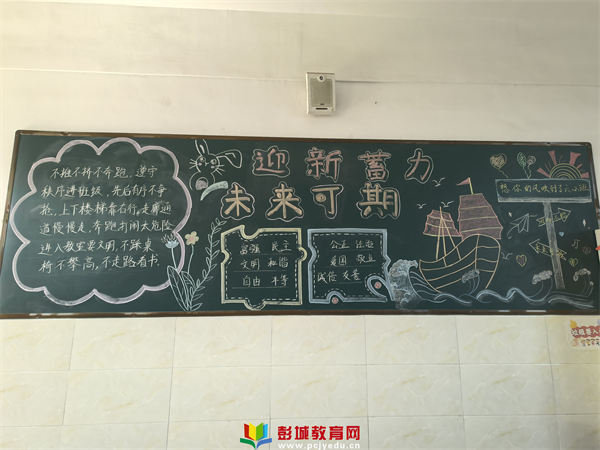 迎新蓄力
未来可期
不推不挤不奔跑、遵守
秩序进班级、先后有序不争
抢、上下楼梯靠右行、走廊通
道慢慢走、奔跑打闹太危险
进入教室要文明、不踩桌
椅不攀高、不走路看书
富强 民主
文明 和谐
自由 平等
公正 法治
爱国 敬业
诚信 友善
想你的风吹到了六小班
彭城教育网
www.pcjyedu.cn